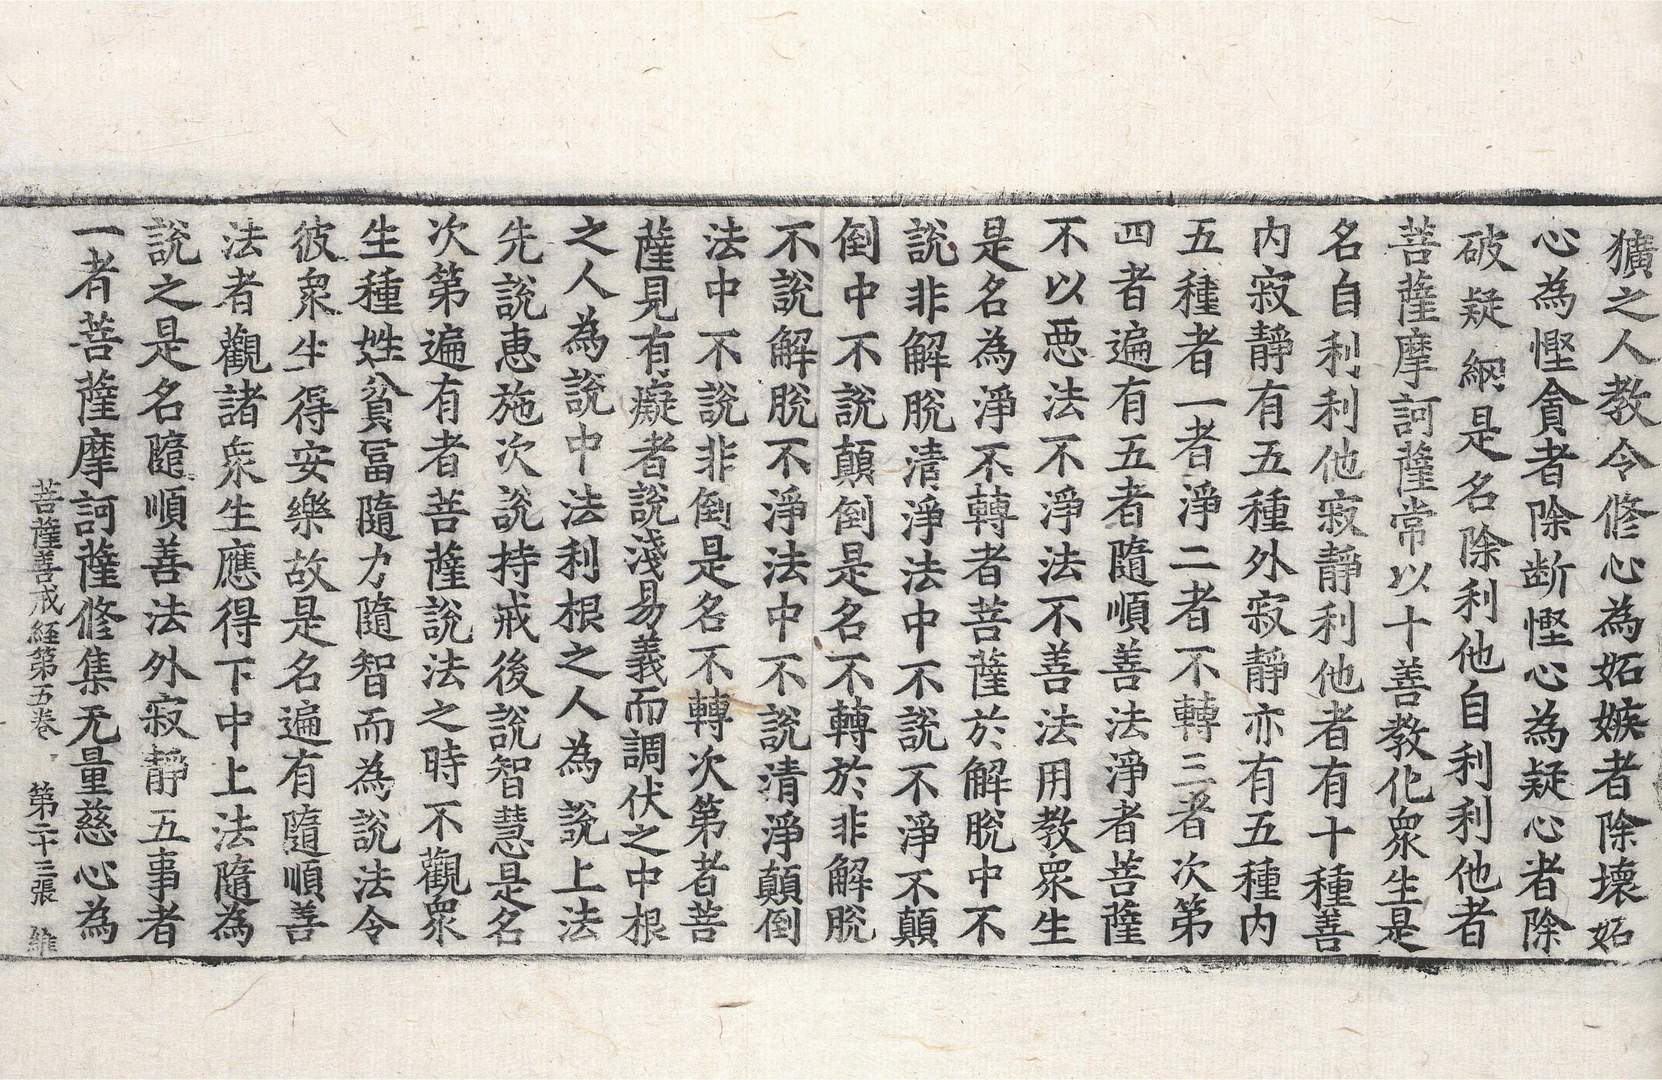 獷之人教令修心為妬嫉者除壞妬
心為慳貪者除断慳心為疑心者除
破疑網是名除利他自利利他者
菩薩摩訶薩常以十善教化眾生是
名自利利他寂靜利他者有十種善
内寂靜有五種外寂靜亦有五種内
五種者一者淨二者不轉三者次第
四者遍有五者隨順善法淨者菩薩
不以惡法不淨法不善法用教眾生
是名為淨不轉者菩薩於解脫中不
說非解脫清淨法中不說不淨不顛
倒中不說顛倒是名不轉於非解脫
不說解脫不淨法中不說清淨顛倒
法中不說非倒是名不轉次第者菩
薩見有癡者說淺易義而調伏之中根
之人為說中法利根之人為說上法
先說惠施次說持戒後說智慧是名
次第遍有者菩薩說法之時不觀眾
生種姓貧冨隨力隨智而為說法令
彼眾生得安樂故是名遍有隨順善
法者觀諸眾生應得下中上法隨為
說之是名隨順善法外寂靜五事者
一者菩薩摩訶薩修集无量慈心為
菩薩善戒経第五巻 第二十三張 維